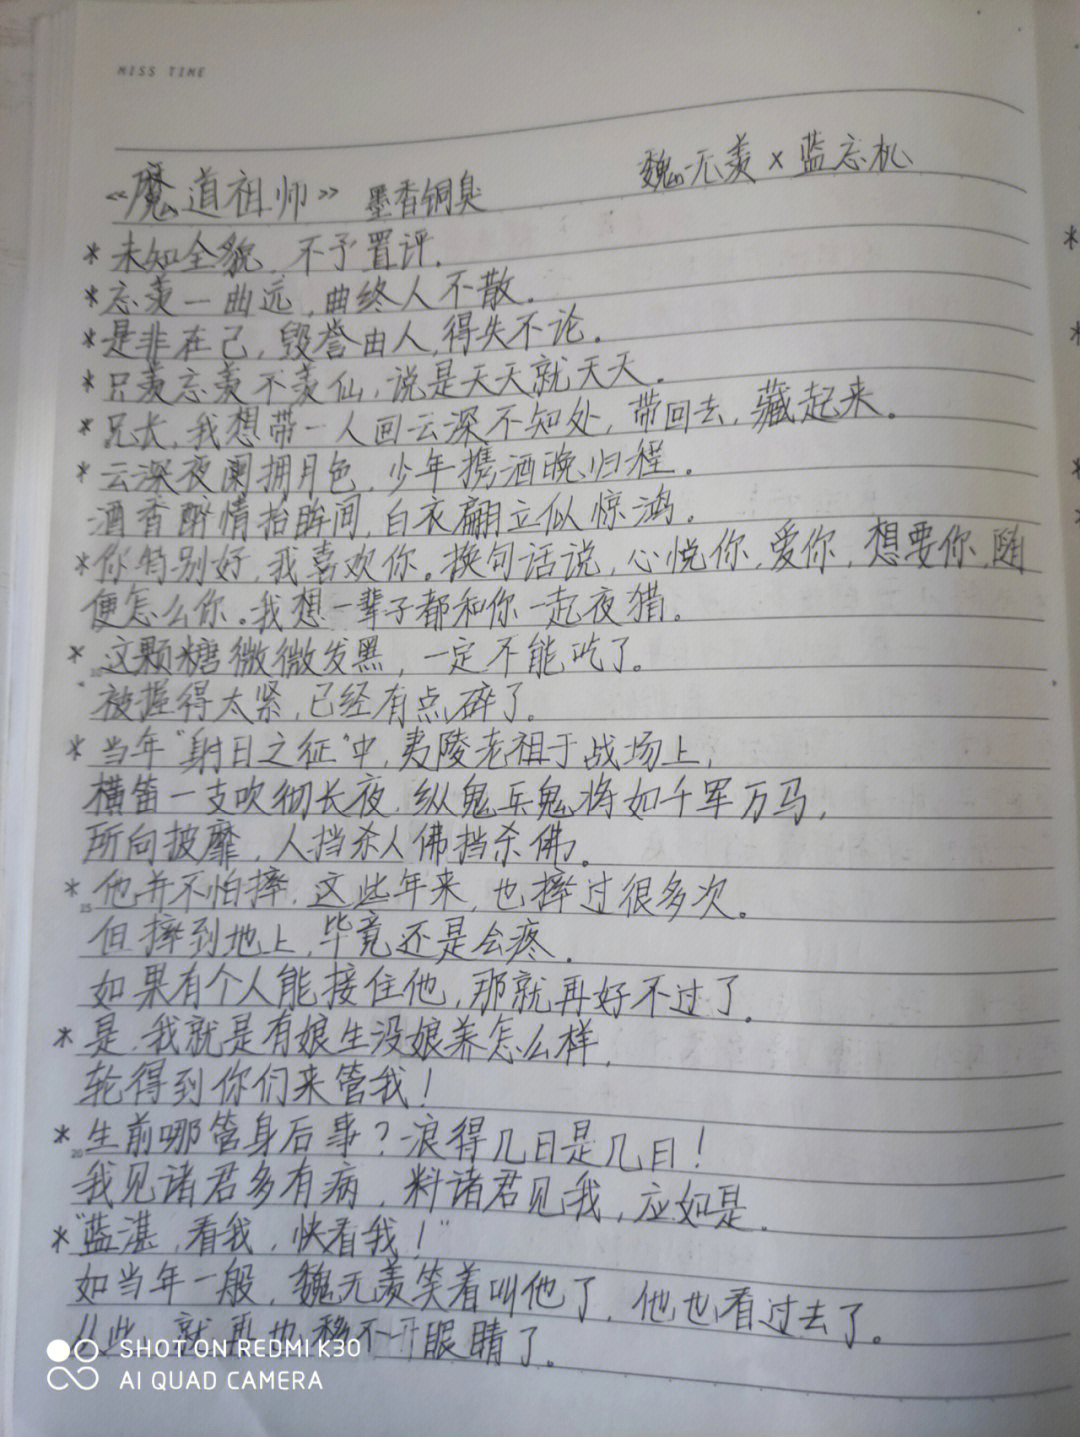 MISS TIME
魏无羡×蓝忘机
《魔道祖师》 墨香铜臭
*未知全貌,不予置评.
*忘羡一曲远,曲终人不散.
*是非在己,毁誉由人,得失不论.
*只羡忘羡不羡仙,说是天天就天天.
*兄长,我想带一人回云深不知处,带回去,藏起来.
*云深夜阑拥月色,少年携酒晚归程.
酒香醉情抬眸间,白衣翩立似惊鸿.
*你特别好,我喜欢你。换句话说,心悦你,爱你,想要你,随
便怎么你。我想一辈子都和你一起夜猎。
*这颗糖微微发黑,一定不能吃了。
被握得太紧,已经有点碎了。
*当年"射日之征"中,夷陵老祖于战场上,
横笛一支吹彻长夜,纵鬼兵鬼将如千军万马,
所向披靡,人挡杀人佛挡杀佛。
*他并不怕摔,这些年来,也摔过很多次。
15
但摔到地上,毕竟还是会疼.
如果有个人能接住他,那就再好不过了.
*是,我就是有娘生没娘养怎么样,
轮得到你们来管我!
*生前哪管身后事?浪得几日是几日!
20
我见诸君多有病,料诸君见我,应如是.
*"蓝湛,看我,快看我!"
如当年一般,魏无羡笑着叫他了,他也看过去了。
从此,就再也移不开眼睛了。
SHOT ON REDMI K30
AI QUAD CAMERA